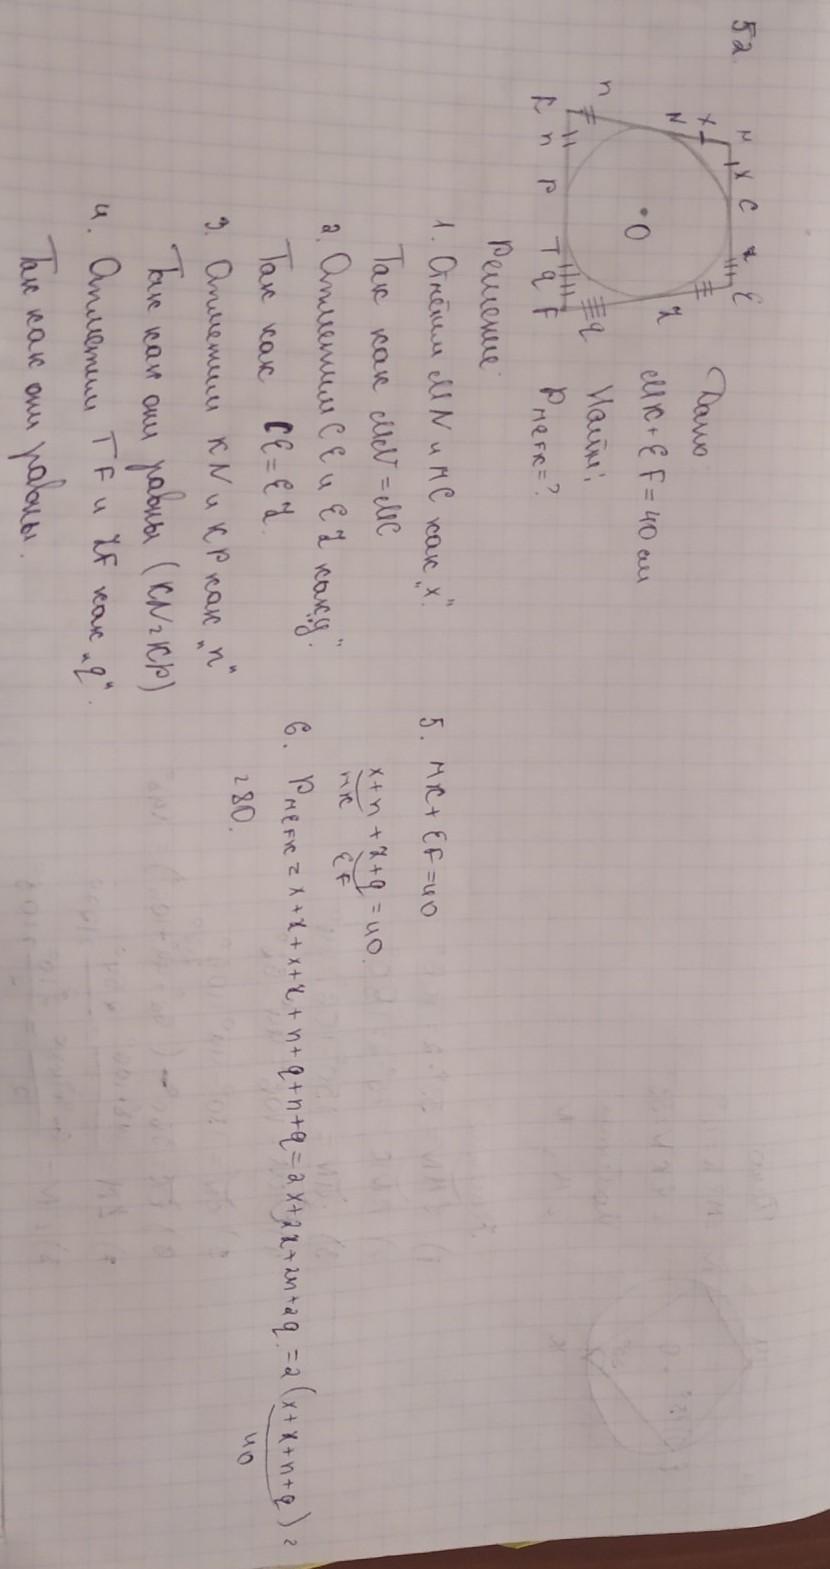 52
M x C z E
x
N
n
O
z
K n P T q F
q
Дано
MK + EF = 40 см
Найти:
P MEFK = ?
Решение:
1. Отметим MN и MC как "x".
Так как MN = MC
2. Отметим CE и EZ как
Так как CE = EZ.
3. Отметим KN и KP как "n"
Так как они равны (KN = KP)
4. Отметим TF и ZF как "q".
Так как они равны.
5. MK + EF = 40
x + n + z + q = 40.
MK EF
6. P MEFK = x + z + x + z + n + q + n + q = 2x + 2z + 2n + 2q = 2(x + z + n + q) =
40
= 80.